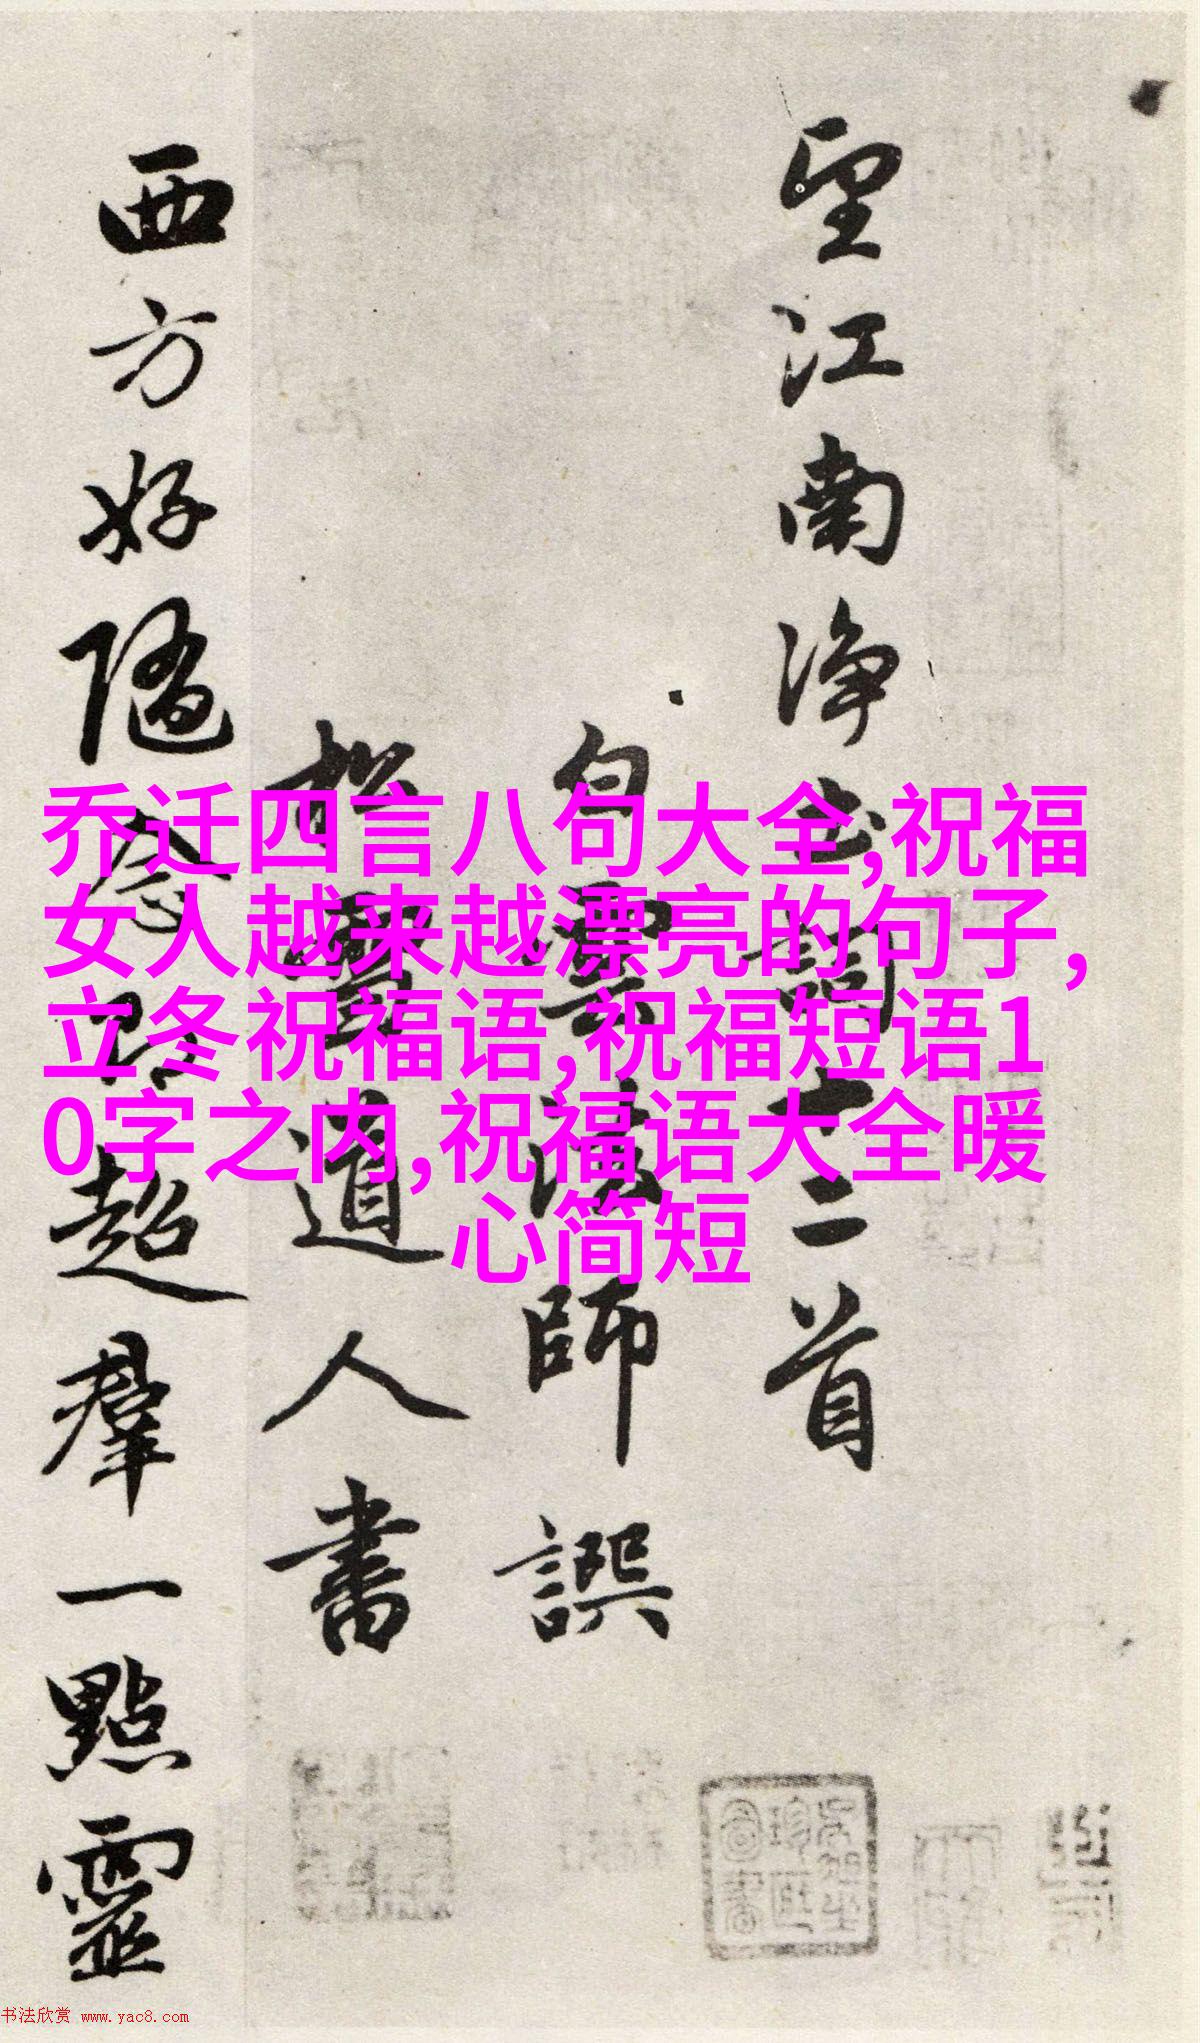 望江南净土詞十二首
白雲法師譔
松雪道人書
西方好隨念即超羣一點靈
乔迁四言八句大全,祝福
女人越来越漂亮的句子,
立冬祝福语,祝福短语1
0字之内,祝福语大全暖
心简短
书法欣赏 www.yac8.com